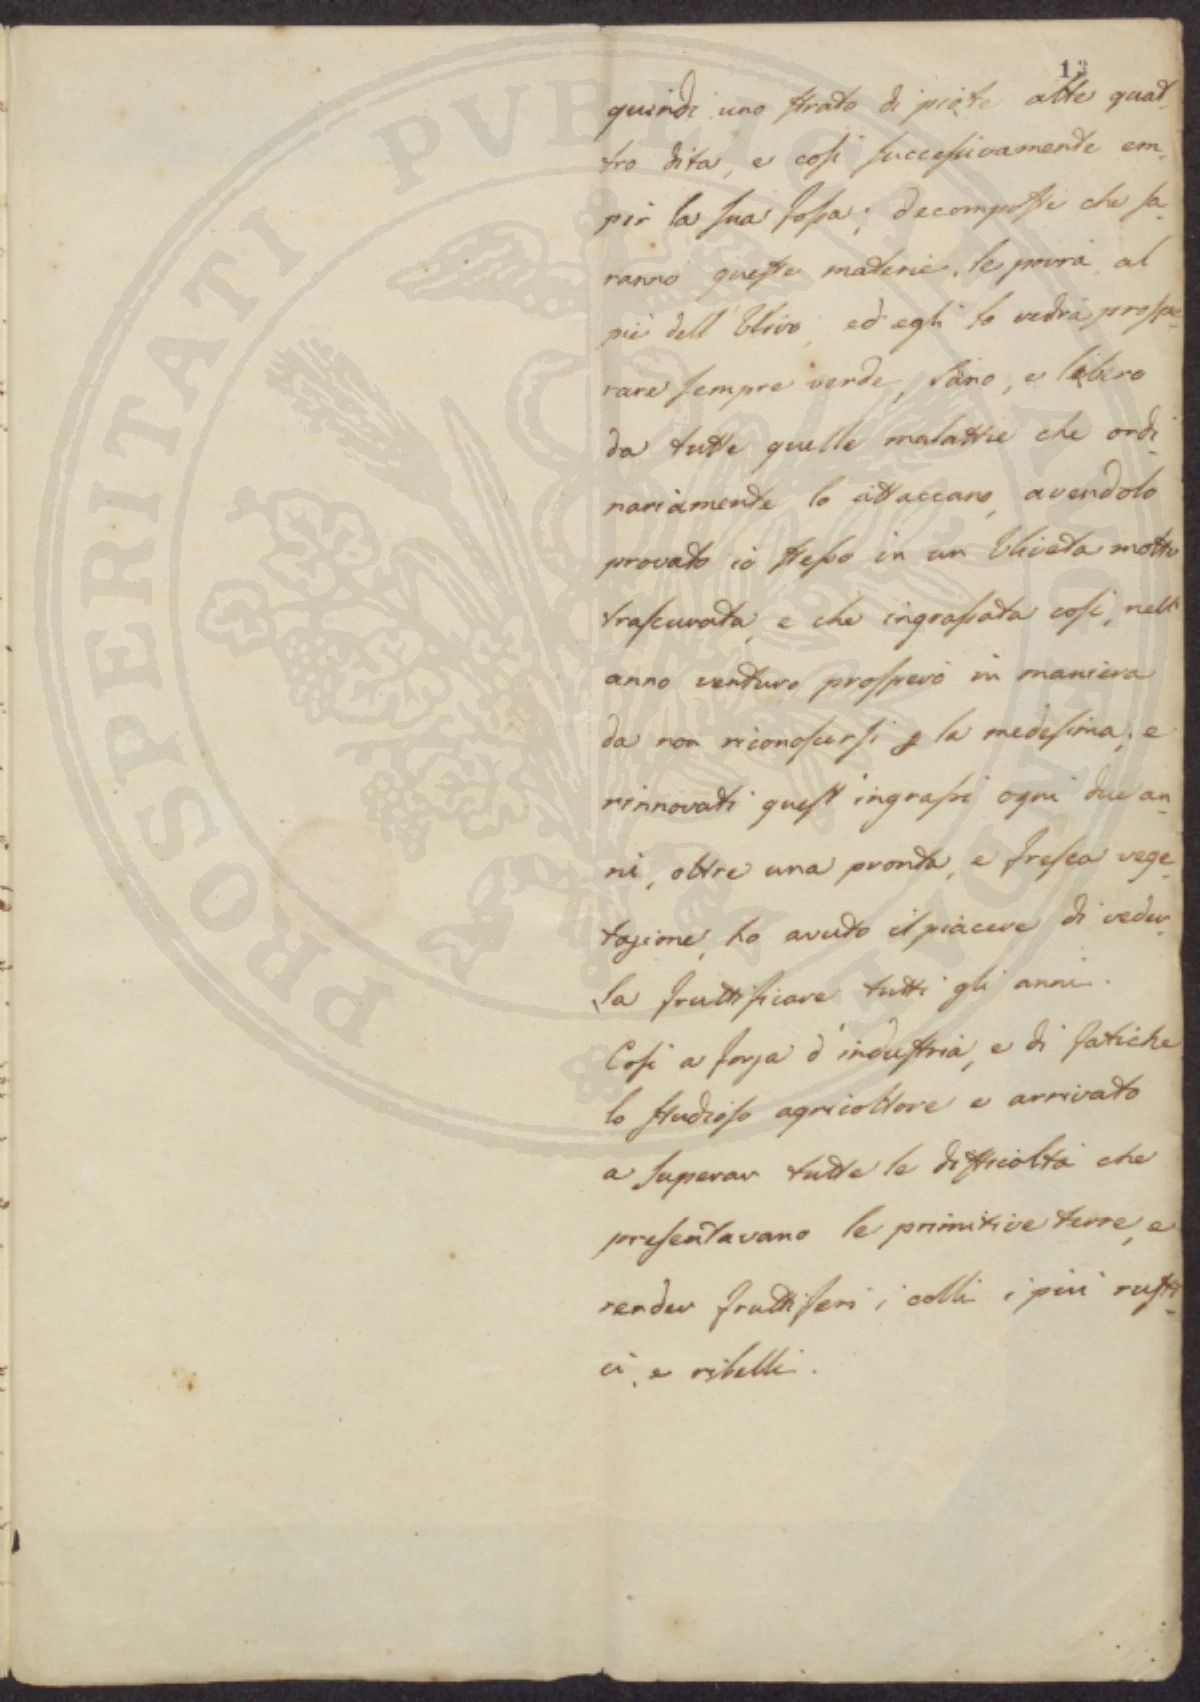 13
quindi uno strato di piote alte quat-
tro dita, e così successivamente em-
pir la sua fossa; decomposte che sa-
ranno queste materie, le porrà al
piè dell'Ulivo, ed egli lo vedrà prospe-
rare sempre verde, sano, e libero
da tutte quelle malattie che ordi-
nariamente lo attaccano, avendolo
provato io stesso in un Uliveta molto
trascurata, e che ingrassata così, nell'
anno venturo prosperò in maniera
da non riconoscersi p la medesima, e
rinnovati quest'ingrassi ogni due an-
ni, oltre una pronta, e fresca vege-
tazione, ho avuto il piacere di veder-
la fruttificare tutti gli anni.
Così a forza d'industria, e di fatiche
lo studioso agricoltore e arrivato
a superar tutte le difficoltà che
presentavano le primitive terre, e
render fruttiferi i colli i più rusti-
ci, e ribelli.
PROSPERITATI PUBLICAE